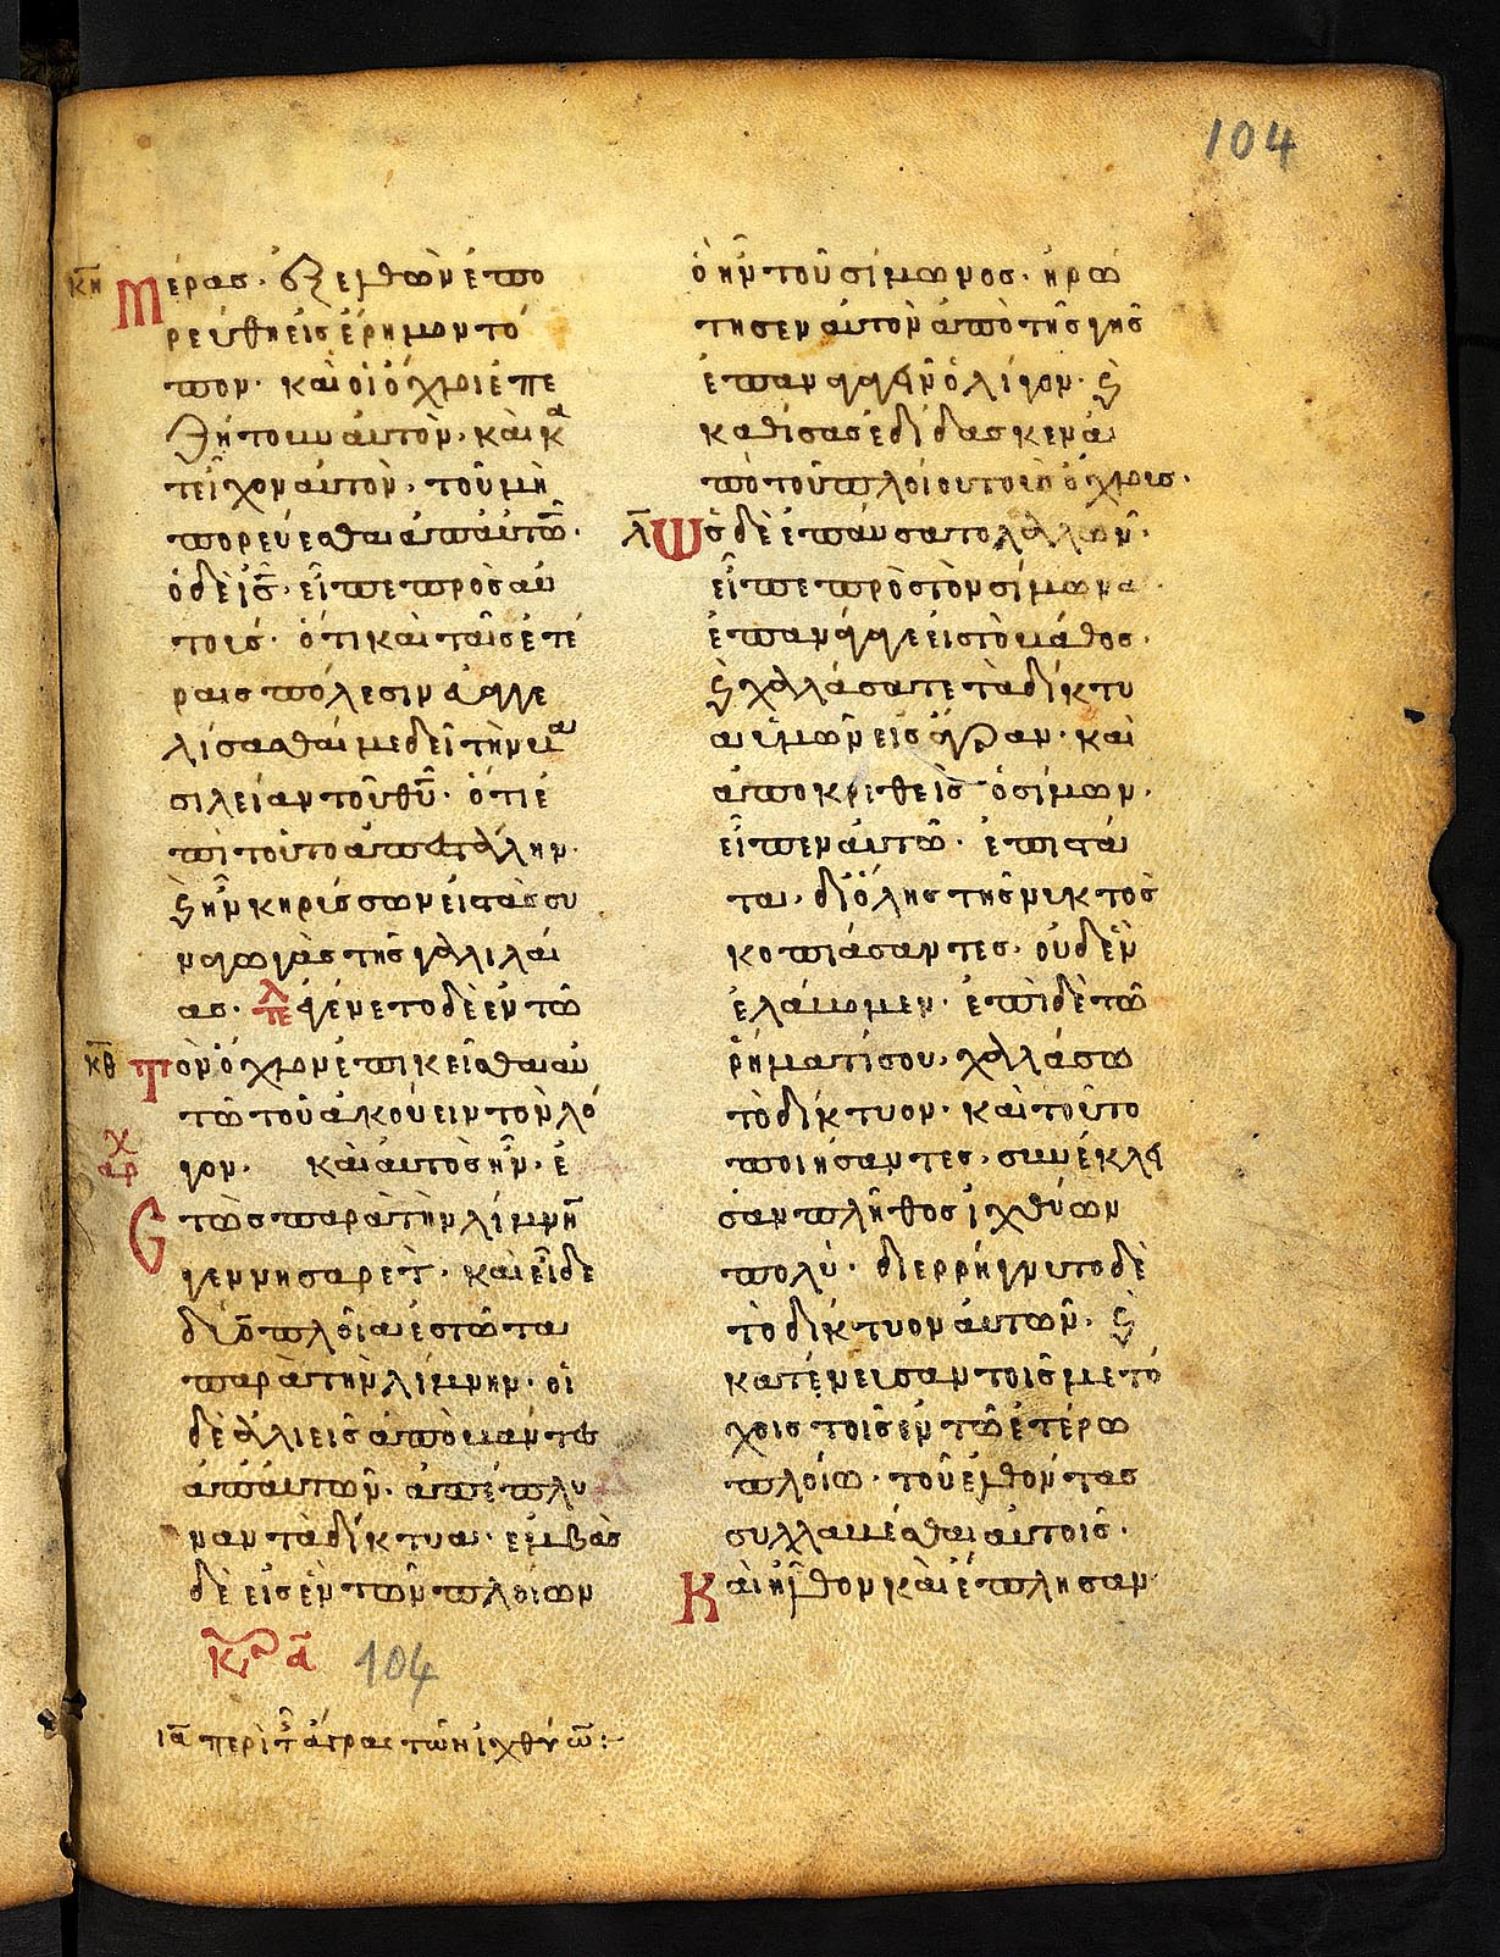 104
κη Μέρας· ἐξελθὼν ἐπο
ρεύθη εἰς ἔρημον τό
πον· καὶ οἱ ὄχλοι ἐπε
ζήτουν αὐτὸν· καὶ κα
τεῖχον αὐτὸν· τοῦ μὴ
πορεύεσθαι ἀπ' αὐτῶν·
ὁ δὲ ις· εἶπε πρὸς αὐ
τούς· ὅτι καὶ ταῖς ἑτέ
ραις πόλεσιν εὐαγγε
λίσασθαί με δεῖ τὴν βα
σιλείαν τοῦ θυ· ὅτι ἐ
πὶ τοῦτο ἀπεστάλην·
ϗ ἦν κηρύσσων εἰς τὰς συ
ναγωγὰς τῆς γαλιλαί
ας· τε λ ἐγένετο δὲ ἐν τῶ
κθ Τὸν ὄχλον ἐπικεῖσθαι αὐ
τῶ τοῦ ἀκούειν τὸν λό
χ αρ γον· καὶ αὐτὸς ἦν· ἑ
Ετὼς παρὰ τὴν λίμνην
γεννησαρέτ· καὶ εἶδε
δύο πλοῖα ἑστῶτα
παρὰ τὴν λίμνην· οἱ
δὲ ἁλιεῖς ἀποβάντες
ἀπ' αὐτῶν· ἀπέπλυ
ναν τὰ δίκτυα· ἐμβὰς
δὲ εἰς ἓν τῶν πλοίων
104
ια περὶ τ ἄγρας τῶν ἰχθύω:
ὃ ἦν τοῦ σίμωνος· ἠρώ
τησεν αὐτὸν ἀπὸ τῆς γῆς
ἐπαναγαγεῖν ὀλίγον· ϗ
καθίσας ἐδίδασκεν ἀ
πὸ τοῦ πλοίου τοὺς ὄχλους·
λ Ὡς δὲ ἐπαύσατο λαλῶν·
εἶπε πρὸς τὸν σίμωνα·
ἐπανάγαγε εἰς τὸ βάθος·
ϗ χαλάσατε τὰ δίκτυ
α ὑμῶν εἰς ἄγραν· καὶ
ἀποκριθεὶς ὁ σίμων·
εἶπεν αὐτῶ· ἐπιστά
τα· δι' ὅλης τῆς νυκτὸς
κοπιάσαντες· οὐδὲν
ἐλάβομεν· ἐπὶ δὲ τῶ
ῥήματί σου· χαλάσω
τὸ δίκτυον· καὶ τοῦτο
ποιήσαντες· συνέκλει
σαν πλῆθος ἰχθύων
πολύ· διερρήγνυτο δὲ
τὸ δίκτυον αὐτῶν· ϗ
κατένευσαν τοῖς μετό
χοις τοῖς ἐν τῶ ἑτέρω
πλοίω· τοῦ ἐλθόντας
συλλαβέσθαι αὐτοῖς·
Καὶ ἦλθον καὶ ἔπλησαν